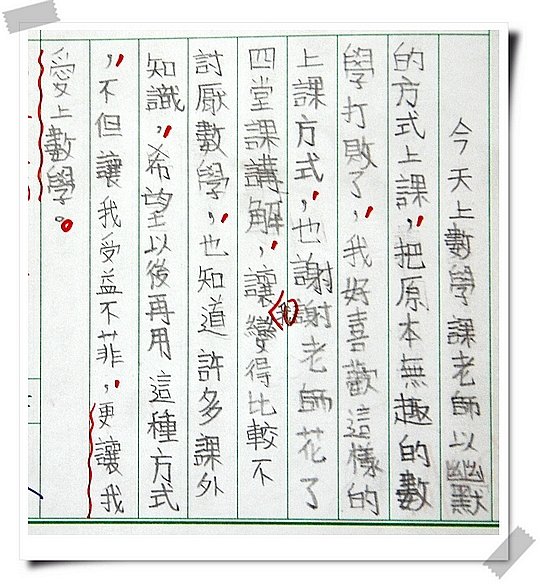 今天上數學課老師以幽默
的方式上課,把原本無趣的數
學打敗了,我好喜歡這樣的
上課方式,也謝謝老師花了
四堂課講解,讓我變得比較不
討厭數學,也知道許多課外
知識,希望以後再用這種方式
,不但讓我受益不菲,更讓我
愛上數學。